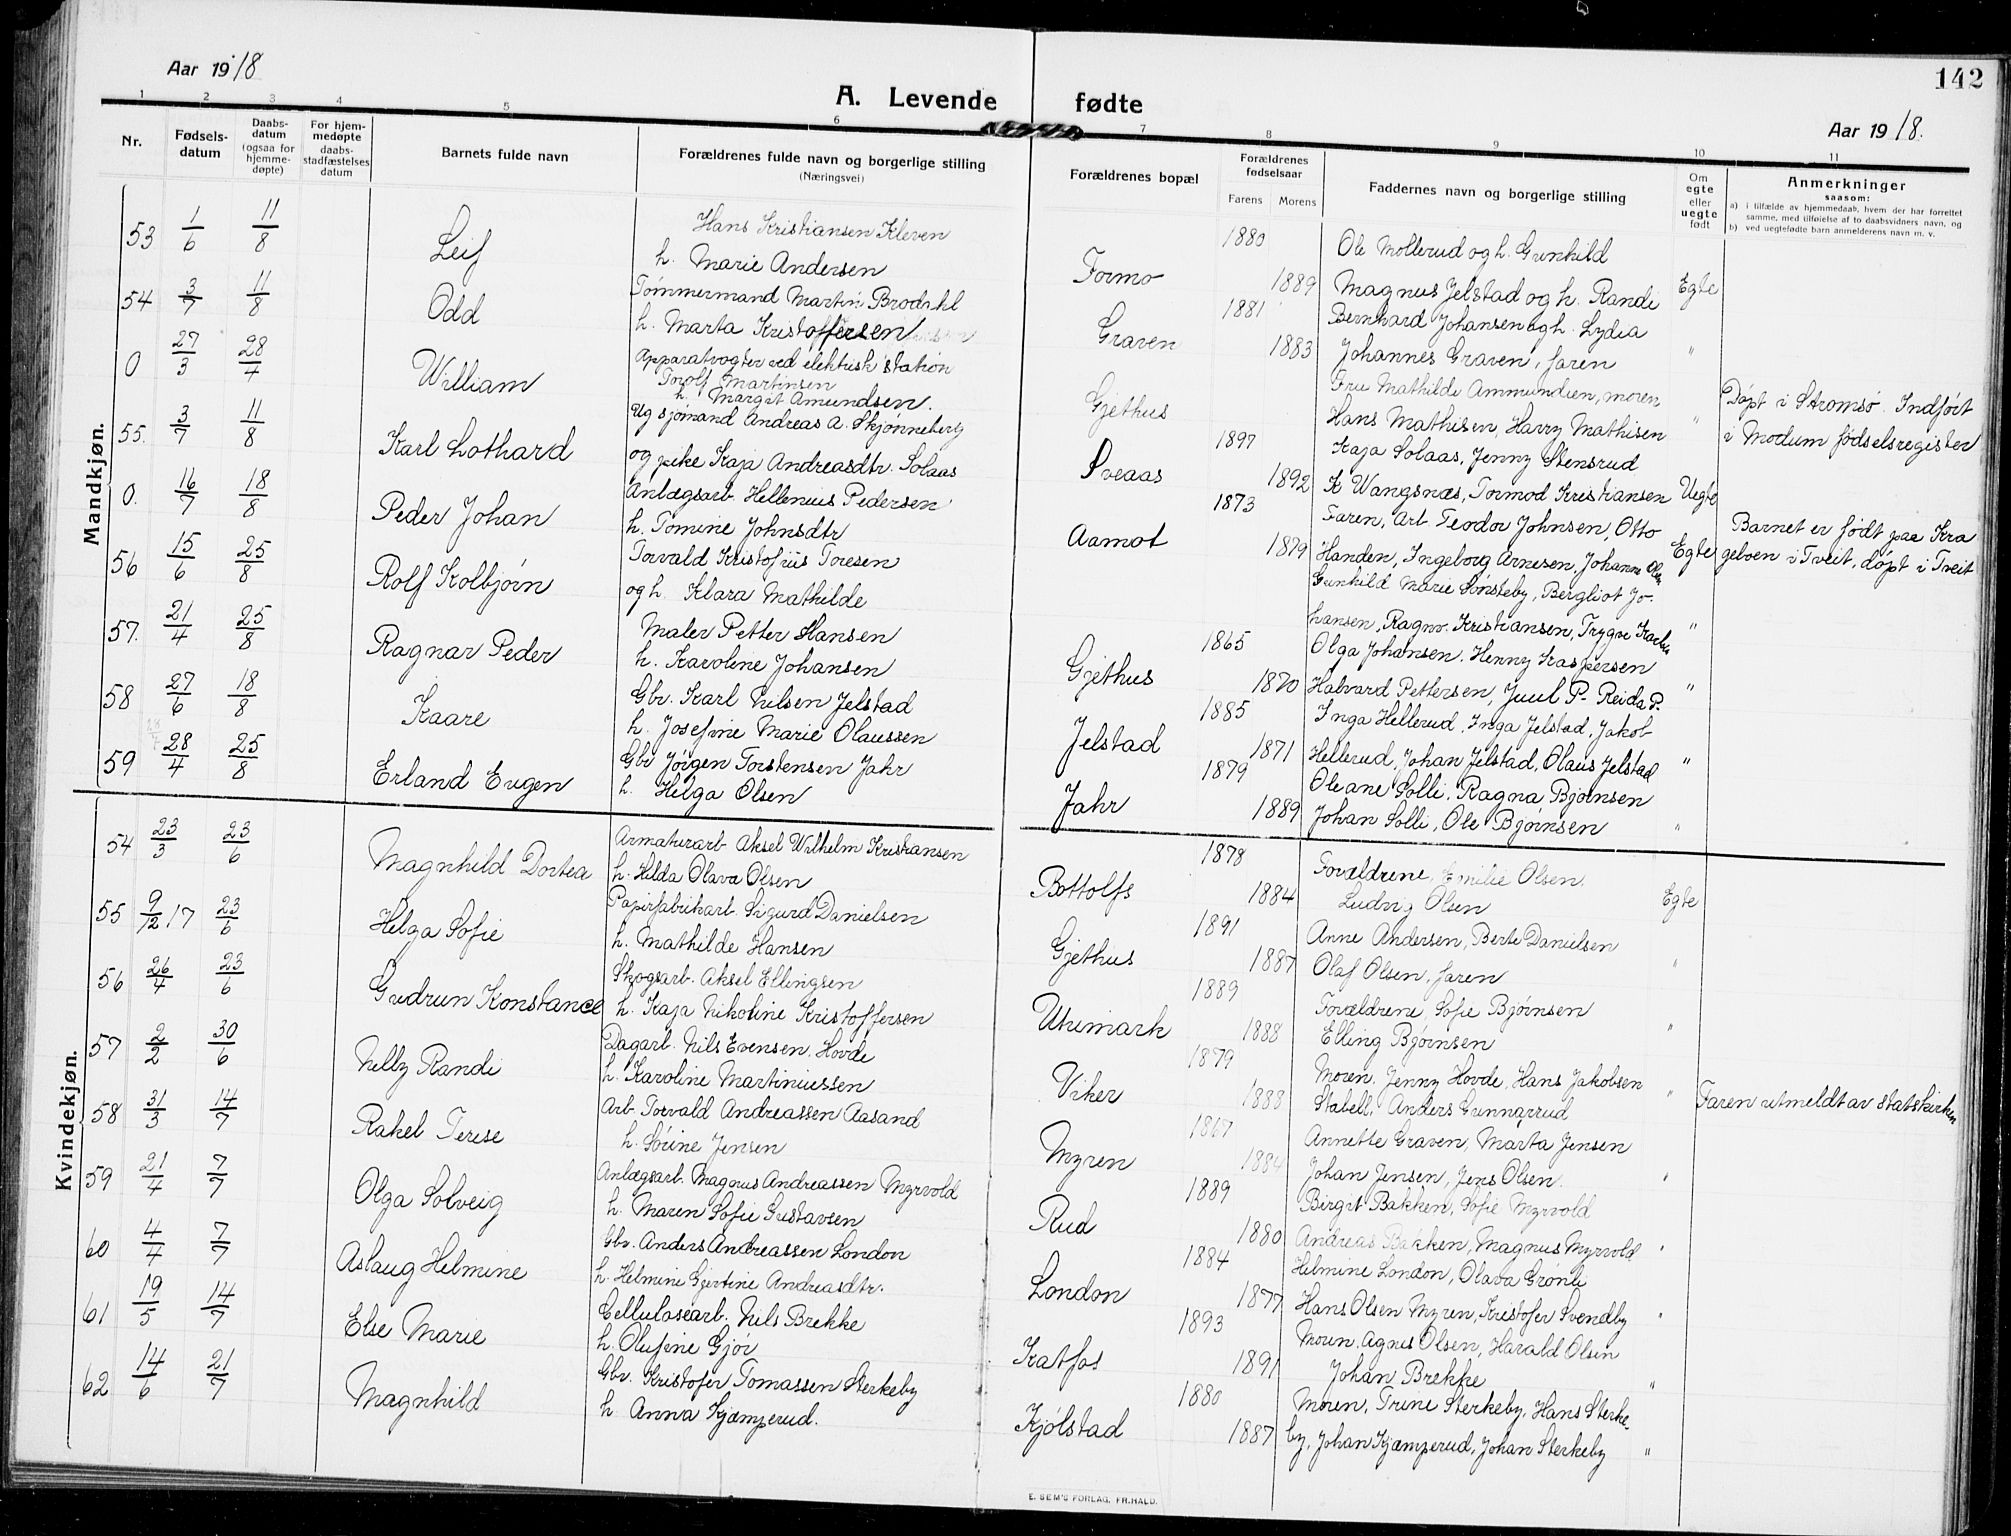 Aar 1918
A. Levende fødte
142
Aar 1918.
1 2 3 4 5 6 7 8 9 10 11
Nr.
Fødsels-
datum
Daabs-
datum
(ogsaa for
hjemme-
døpte)
For hjem-
medøpte
daabs-
stadfæstelses
datum
Barnets fulde navn
Forældrenes fulde navn og borgerlige stilling
(Næringsvei)
Forældrenes bopæl
Forældrenes
fødselsaar
Farens Morens
Faddernes navn og borgerlige stilling
Om
egte
eller
uegte
født
Anmerkninger
saasom:
a) i tilfælde av hjemmedaab, hvem der har forrettet
samme, med tilføielse af to daabsvidners navn, og
b) ved uegtefødte barn anmelderens navn m. v.
Mandkjøn.
53 1/6 11/8 Leif Hans Kristiansen Kleven
h. Marie Andersen
Formo 1880 1889 Ole Mollerud og h. Gunhild
Magnus Jelstad og h. Randi Egte
54 3/7 11/8 Odd Tømmermand Martin Brodahl
h. Marta Kristoffersen
Graven 1881 1883 Bernhard Johansen og h. Lydia
Johannes Graven, faren "
0 27/3 28/4 William Apparatvogter ved elektrisk station
Torolf Martinsen
h. Margit Amundsen.
Gjethus Fru Mathilde Ammundsen, moren
Hans Mathisen, Harry Mathisen "
Døpt i Strømsø. Indført
i Modum fødselsregister
55. 3/7 11/8 Karl Lothard Ug sjømand Andreas A. Skjønneberg
og pike Kaja Andreasdtr. Solaas
Sveaas 1897 1892 Kaja Solaas, Jenny Stensrud
K Wangsnæs, Tormod Kristiansen Uegte
0. 16/7 18/8 Peder Johan Anlægsarb. Hellenius Pedersen
h. Tomine Johnsdtr
Aamot 1873 1879 Faren, Arb. Teodor Johnsen, Otto
Handen, Ingeborg Arnesen, Johanne Olsen Egte
Barnet er født paa Kra
geboen i Tveit, døpt i Tveit
56 15/6 25/8 Rolf Kolbjørn Torvald Kristofius Toresen
og h. Klara Mathilde
Gunhild Marie Sønsteby, Bergliot Jo-
hansen, Ragnv. Kristiansen, Trygve "
57. 21/4 25/8 Ragnar Peder Maler Petter Hansen
h. Karoline Johansen
Gjethus 1865 1870 Olga Johansen. Henny Kaspersen
Halvard Pettersen, Juul P- Reida P. "
58 27/6 18/8 Kaare Gbr. Karl Nilsen Jelstad
h. Josefine Marie Olaussen
Jelstad 1885 1871 Inga Hellerud, Inga Jelstad, Jakob
Hellerud, Johan Jelstad, Olaus Jelstad "
59 28/4 25/8 Erland Eugen Gbr Jørgen Torstensen Jahr
h. Helga Olsen
Jahr 1879 1889 Oleane Solli, Ragna Bjørnsen
Johan Solli, Ole Bjørnsen "
Kvindekjøn.
54 23/3 23/6 Magnhild Dortea Armaturarb. Aksel Wilhelm Kristiansen
h. Hilda Olava Olsen
Bottolfs 1878 1884 Forældrene, Emilie Olsen.
Ludvig Olsen Egte
55 9/12 17 23/6 Helga Sofie Papirfabrikarb. Sigurd Danielsen
h. Mathilde Hansen
Gjethus 1891 1887 Anne Andersen, Berte Danielsen
Olaf Olsen, faren "
56 26/4 23/6 Gudrun Konstance Skogsarb. Aksel Ellingsen
h. Kaja Nikoline Kristoffersen
Utximark 1889 1888 Forældrene, Sofie Bjørnsen
Elling Bjørnsen "
57 2/2 30/6 Nelly Randi Dagarb. Nils Evensen. Hovde
h. Karoline Martiniussen
Viker 1879 1888 Moren, Jenny Hovde, Hans Jakobsen
Stabell, Anders Gunnarrud "
Faren utmeldt av statskirken
58 31/3 14/7 Rakel Terese Arb. Torvald Andreassen Aasand
h. Sørine Jensen
Myren 1867 1884 Annette Graven, Marta Jensen
Johan Jensen, Jens Olsen. "
59 21/4 7/7 Olga Solveig Anlægsarb. Magnus Andreassen Myrvold
h. Maren Sofie Gustavsen
Rud 1889 1880 Birgit Bakken, Sofie Myrvold
Andreas Bakken, Magnus Myrvold "
60 4/4 7/7 Aslaug Helmine Gbr. Anders Andreassen London
h. Helmine Gjertine Andreasdtr.
London 1884 1877 Helmine London, Olava Grønli
Hans Olsen Myren, Kristofer Svendby "
61 19/5 14/7 Else Marie Cellulosearb. Nils Brekke
h. Olufine Gjør
Katfos 1893 1891 Moren, Agnes Olsen, Harald Olsen
Johan Brekke "
62 14/6 21/7 Magnhild Gbr. Kristofer Tomassen Sterkeby
h. Anna Kjæmperud.
Kjølstad 1880 1887 Moren, Trine Sterkeby, Hans Sterke-
by, Johan Kjæmperud, Johan Sterkeby "
E. SEM'S FORLAG, FR.HALD.